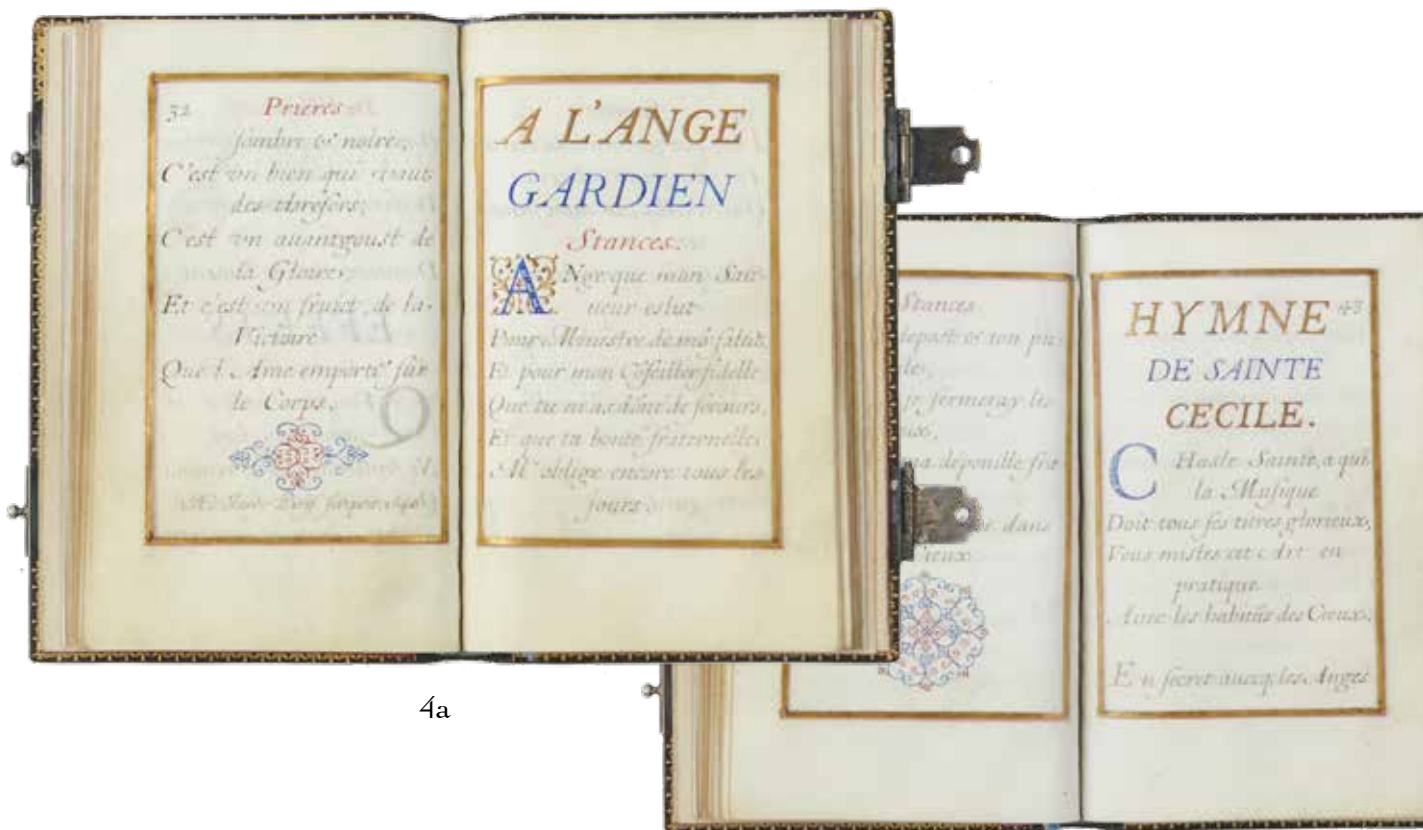 32 Prieres
sombre & noire,
C'est vn bien qui vaut
des thresors,
C'est vn auantgoust de
la Gloire,
Et c'est vn fruict de la
Victoire
Que l'Ame emporte sur
le Corps.
A L'ANGE
GARDIEN
Stances.
ANge que mon Sau-
ueur eslut
Pour Ministre de mō salut,
Et pour mon Cōseiller fidelle
Que tu m'as dōné de secours,
Et que ta bonté fraternelle
M'oblige encore tous les
jours
4a
Stances.
& ton
je fermeray les
dépouille
dans
Cieux
HYMNE 43
DE SAINTE
CECILE.
CHaste Sainte, a qui
la Musique
Doit tous ses titres glorieux,
Vous mistes cet Art en
pratique
Auec les habitās des Cieux,
En secret auecq les Anges